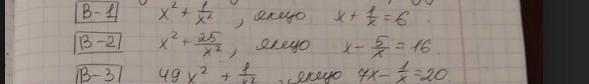 В-1 x² + 1/x² , якщо x + 1/x = 6.
В-2 x² + 25/x² , якщо x - 5/x = 16.
В-3) 49x² + 1/x² , якщо 7x - 1/x = 20.